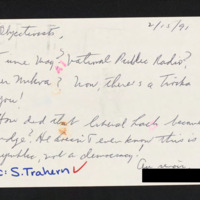 2/13/91
Objectivists,
Tune Way? National Public Radio?
Mikva? Now, there's a Troika
you!
How did that liberal hack become
judge? He doesn't even know this is
republic, not a democracy.
c: S. Trahern ✓